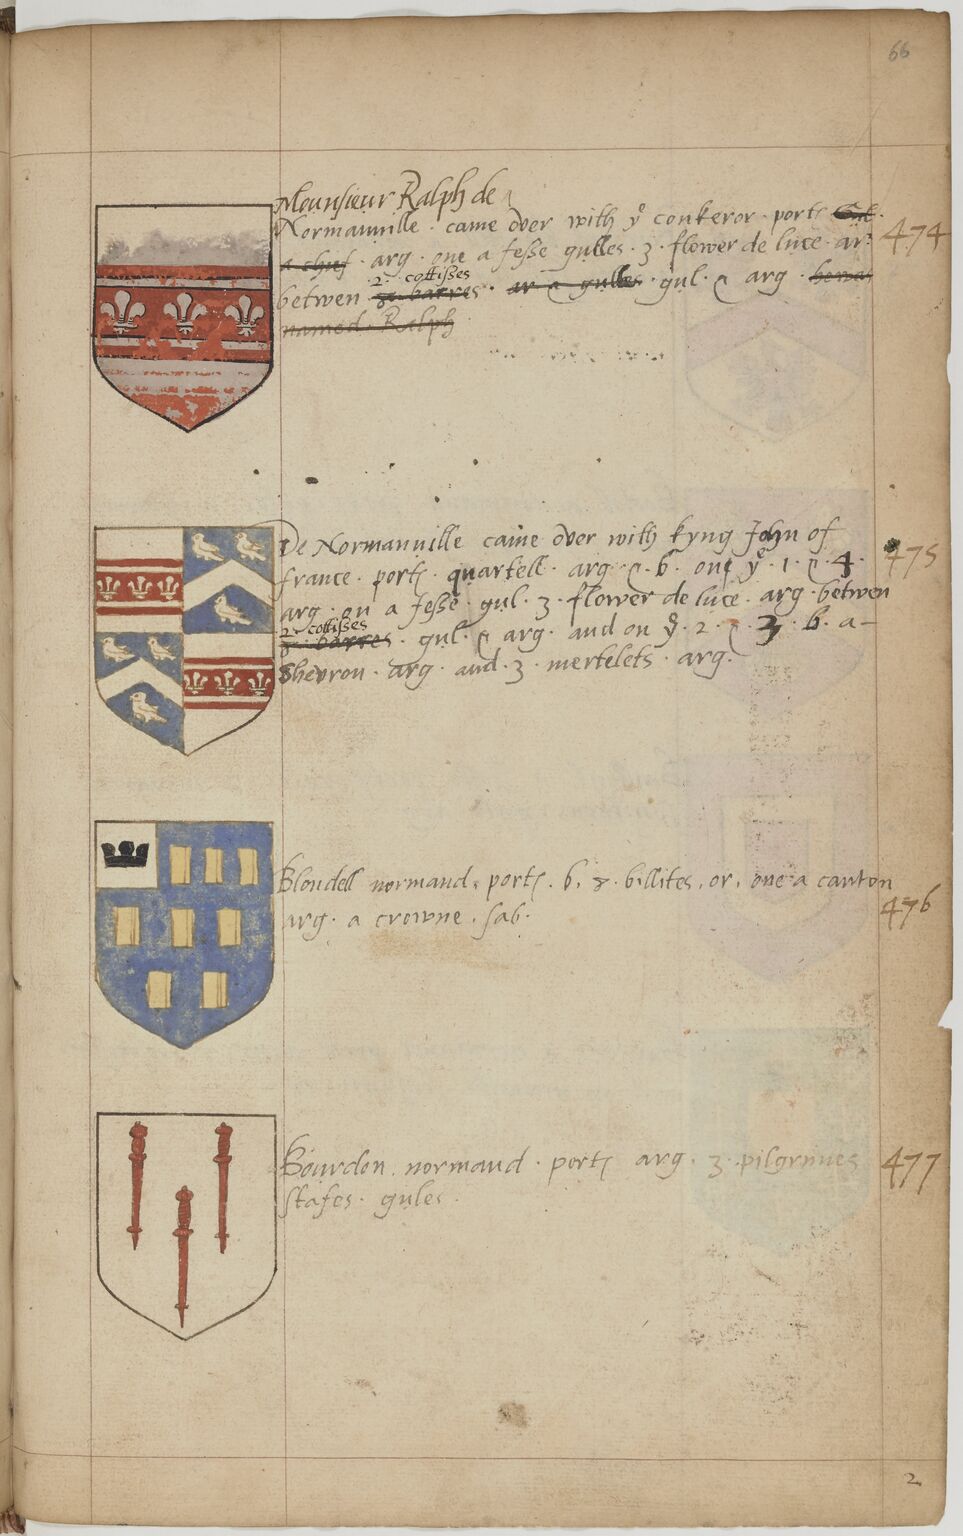 66
Mounsieur Ralph de
Normanuille · came over with yͤ conkeror · port~ Gul·
a chief · arg · one a feſſe gulles · 3 · flower de luce · ar:
2 · cottiſſes
betwen 8 · barres · ar a gulles · gul · & arg ·
named · Ralph
474
De Normanuille came over with kyng John of
france · port~ quartell · arg · & · b · one yͤ · 1 · & 4 ·
475
arg · on a feſſe · gul · 3 · flower de luce · arg · betwen
2 · cottiſſes
8 · barres · gul · & arg · and on yͤ · 2 · & · 3 · b · a-
Shevron · arg · and · 3 · mertelets · arg ·
Blondell normand · port~ · b · 8 · billites · or · one a canton
arg · a crowne · ſab ·
476
Bourdon · normand · port~ arg · 3 · pilgrimes
ſtafes · gules ·
477
2